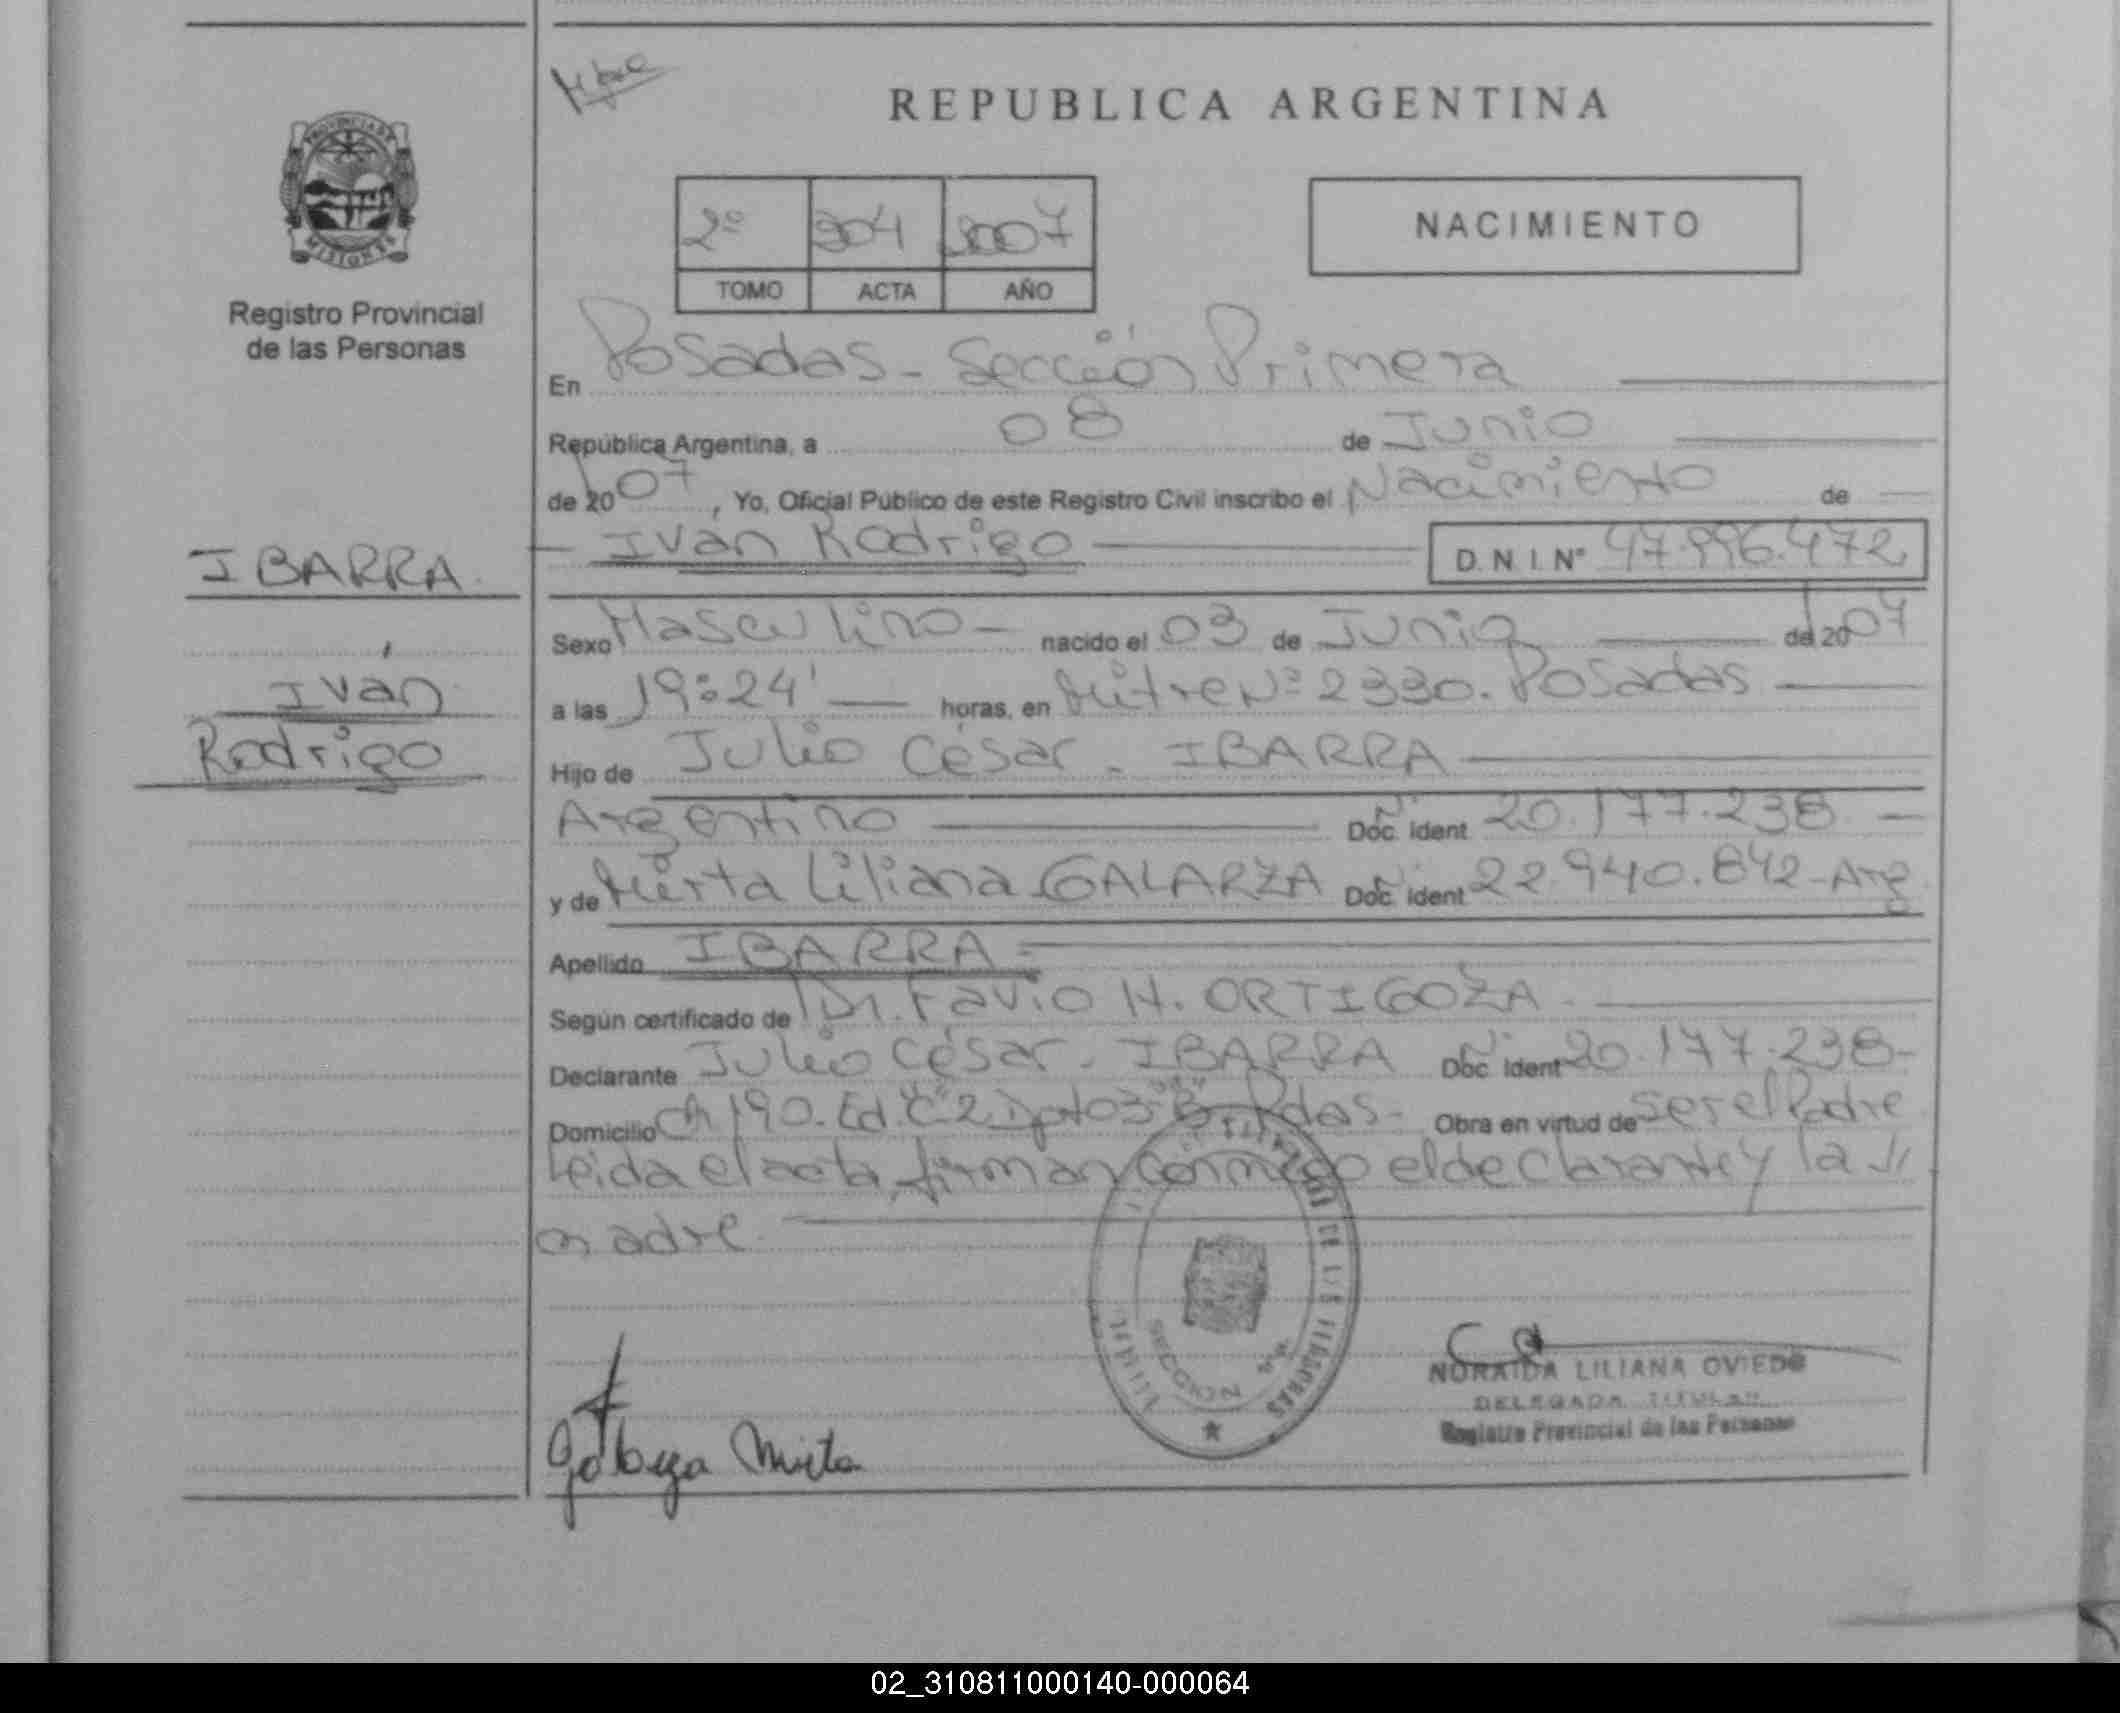 REPUBLICA ARGENTINA
PROVINCIA DE MISIONES
Registro Provincial
de las Personas
2º 304 2007
TOMO ACTA AÑO
NACIMIENTO
En Posadas - Sección Primera
República Argentina, a 08 de Junio
de 2007, Yo, Oficial Público de este Registro Civil inscribo el Nacimiento de
Ivan Rodrigo D.N.I. Nº 47.996.472
IBARRA
Iván
Rodrigo
Sexo Masculino - nacido el 03 de Junio de 2007
a las 19:24' horas, en Mitre Nº 2330. Posadas
Hijo de Julio César - IBARRA
Argentino Doc. Ident Nº 20.177.238
y de Mirta Liliana GALARZA Doc. Ident Nº 22.940.842 - Arg
Apellido IBARRA =
Según certificado de Dr. Favio H. ORTIGOZA.
Declarante Julio César - IBARRA Doc. Ident Nº 20.177.238-
Domicilio Ch 190. Ed. "C" 2 Dpto 03 "B" Pdas- Obra en virtud de ser el Padre
Leida el acta, firman conmigo el declarante y la //
madre.
SECCION
Galarza Mirta
NORAIDA LILIANA OVIEDO
DELEGADA TITULAR
Registro Provincial de las Personas
02_310811000140-000064